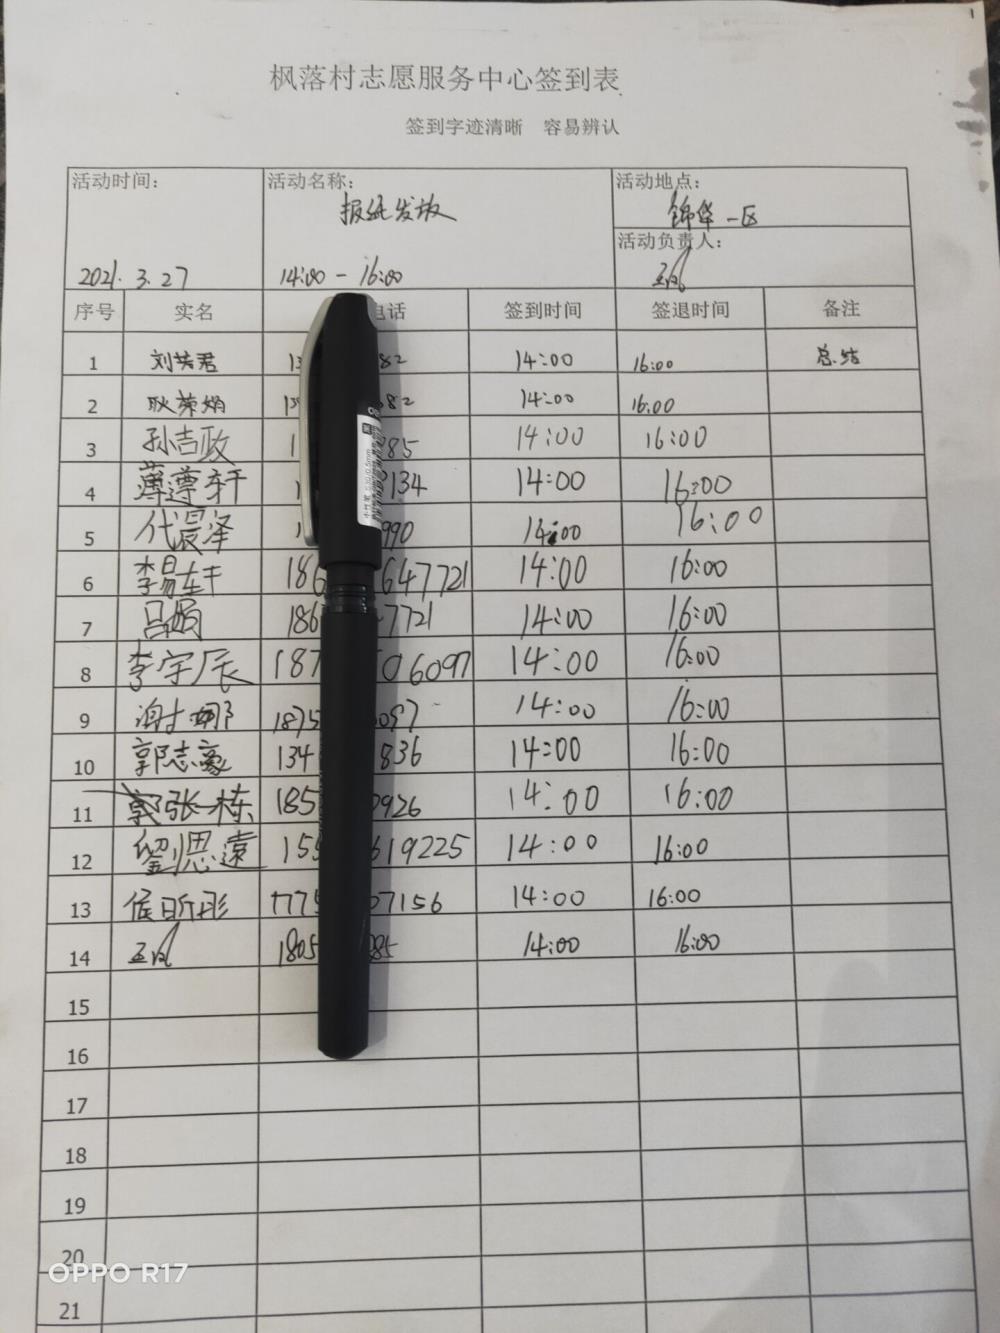 枫落村志愿服务中心签到表
签到字迹清晰 容易辨认
活动时间: 活动名称: 活动地点:
报纸发放 锦华一区
活动负责人:
2021. 3. 27 14:00 - 16:00 王凤
序号 实名 电话 签到时间 签退时间 备注
1 刘芸君 13 82 14:00 16:00 总结
2 耿荣娟 13 682 14:00 16:00
3 孙吉政 1 85 14:00 16:00
4 薄遵轩 1 134 14:00 16:00
5 代晨泽 1 990 14:00 16:00
6 李易轩 186 647721 14:00 16:00
7 吕娟 186 7721 14:00 16:00
8 李宇辰 187 06097 14:00 16:00
9 谢娜 1875 097 14:00 16:00
10 郭志豪 134 836 14:00 16:00
11 张栋 185 0926 14:00 16:00
12 劉思遠 155 619225 14:00 16:00
13 侯昕彤 1775 07156 14:00 16:00
14 王凤 1805 85 14:00 16:00
15
16
17
18
19
20
21
OPPO R17